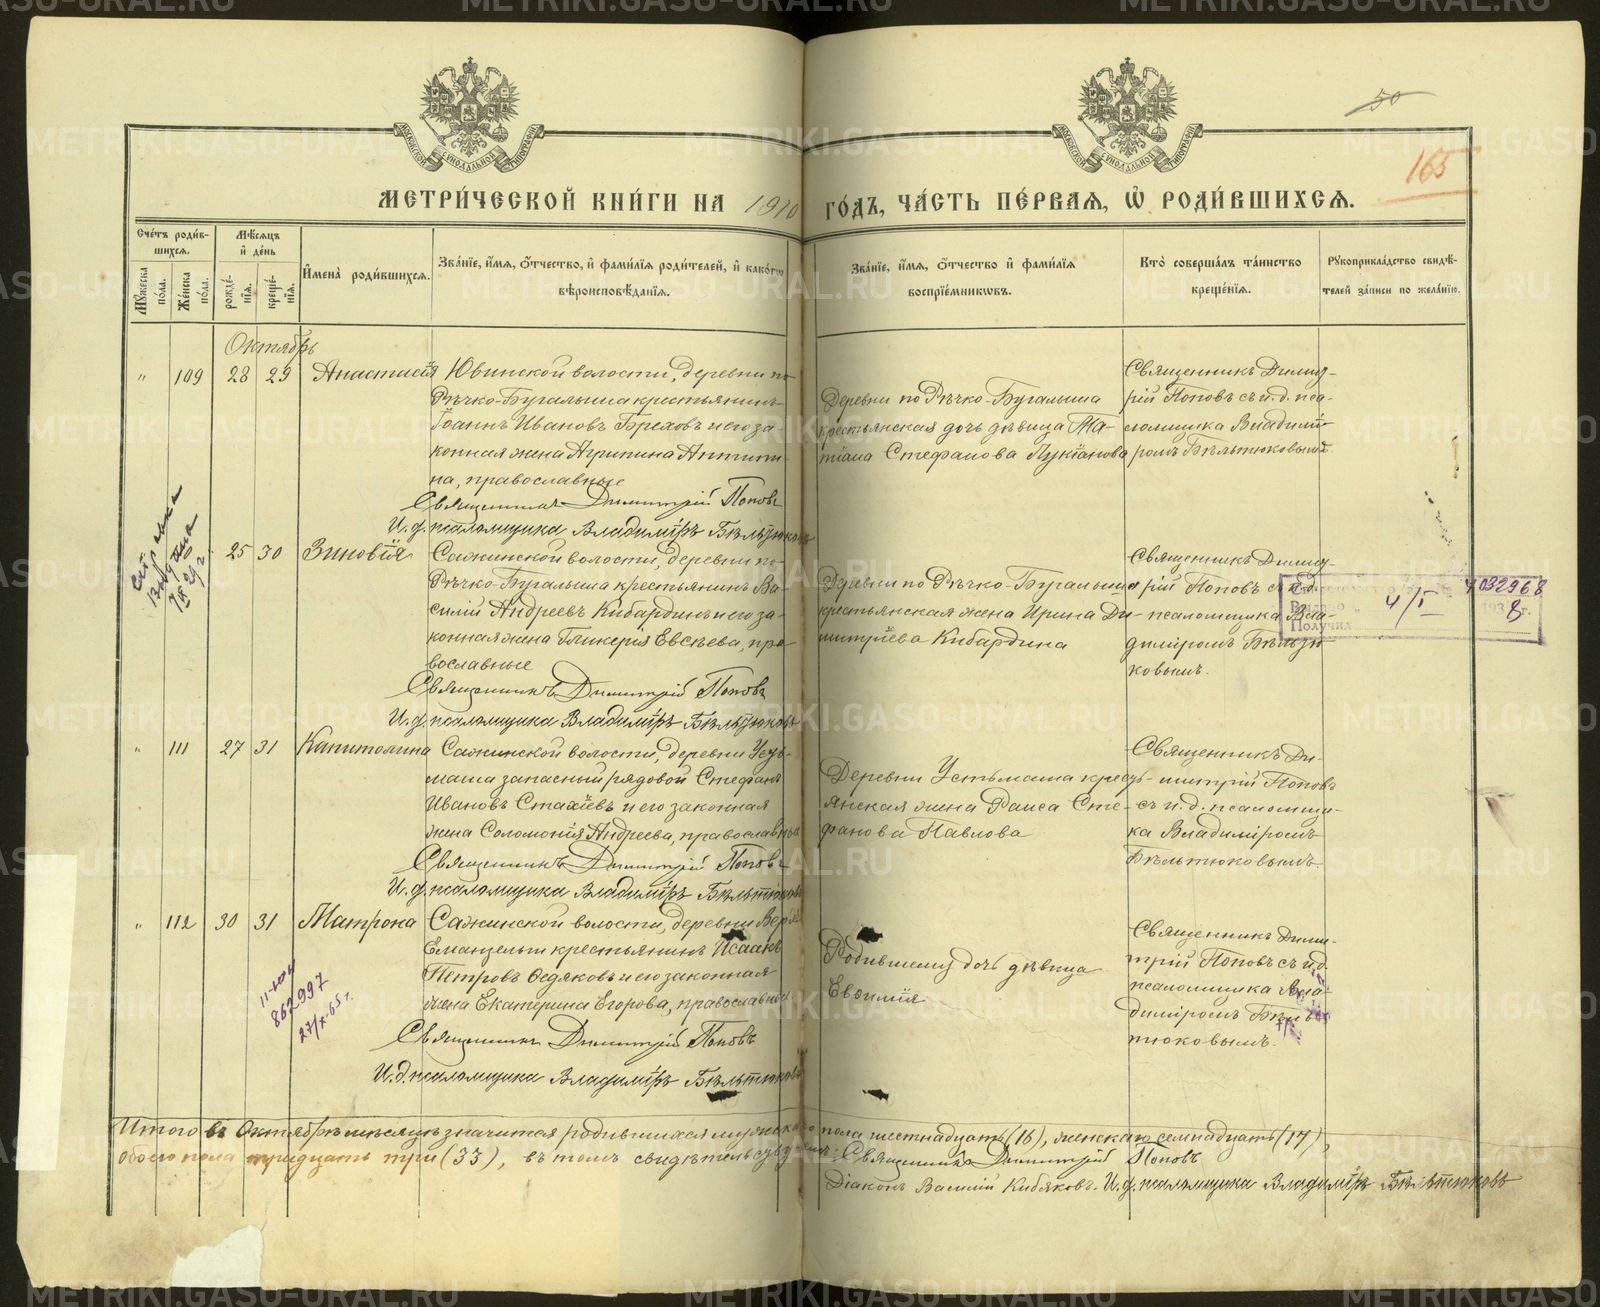 50
165
МОСКОВСКОЙ СѴНОДАЛЬНОЙ ТИПОГРАФІИ
МОСКОВСКОЙ СѴНОДАЛЬНОЙ ТИПОГРАФІИ
МЕТРИ́ЧЕСКОЙ КНИ́ГИ НА 1910 ГО́ДЪ, ЧА́СТЬ ПЕ́РВАѦ, Ѡ҆ РОДИ́ВШИХСѦ.
Сче́тъ роди́в-
шихсѧ.
Мꙋ́жеска по́ла.
Же́нска по́ла.
Мѣ́сѧцъ
и҆ де́нь
рожде́-
нїѧ.
креще́-
нїѧ.
И҆мена̀ роди́вшихсѧ.
Зва́нїе, и҆́мѧ, ѻ҆́тчество, и҆ фами́лїѧ роди́телей, и҆ како́гѡ
вѣроисповѣ́данїѧ.
Зва́нїе, и҆́мѧ, ѻ҆́тчество и҆ фами́лїѧ
воспрїе́мникѡвъ.
Кто̀ соверша́лъ та́инство
креще́нїѧ.
Рꙋкоприкла́дство свидѣ́-
телей за́писи по жела́нїю.
Октябрь
" 109 28 29 Анастасія
Ювинской волости, деревни по
Рѣчко-Бугалыша крестьянинъ
Іоаннъ Ивановъ Бреховъ и его за-
конная жена Агрипина Антипи-
на, православные
Священникъ Димитрій Поповъ
И.д. псаломщика Владиміръ Бѣльтюковъ
Деревни по Рѣчко-Бугалыша
крестьянская дочь дѣвица Та-
тіана Стефанова Лукіанова
Священникъ Димит-
рій Поповъ съ и.д. пса-
ломщика Владимі-
ромъ Бѣльтюковымъ.
25 30 Зиновія
Сажинской волости, деревни по
Рѣчко-Бугалыша крестьянинъ Ва-
силій Андреевъ Кибардинъ и его за-
конная жена Гликерія Евсѣева, пра-
вославные
Священникъ Димитрій Поповъ
И.д. псаломщика Владиміръ Бѣльтюковъ
Деревни по Рѣчко-Бугалыша
крестьянская жена Ирина Ди-
митріева Кибардина
Священникъ Димит-
рій Поповъ съ и.д.
псаломщика Вла-
диміромъ Бѣльтю-
ковымъ.
Выдано 4/I 1938 г.
Получил
4032968
" 111 27 31 Капитолина
Сажинской волости, деревни Усть-
маша запасный рядовой Стефанъ
Ивановъ Стахіевъ и его законная
жена Соломонія Андреева, православные
Священникъ Димитрій Поповъ
И.д. псаломщика Владиміръ Бѣльтюковъ
Деревни Устьмаша кресть-
янская жена Раиса Сте-
фанова Павлова
Священникъ Ди-
митрій Поповъ
съ и.д. псаломщи-
ка Владиміромъ
Бѣльтюковымъ.
" 112 30 31 Матрона
862997
27/X-65 г.
Сажинской волости, деревни Верхъ
Еманзельги крестьянинъ Исаакъ
Петровъ Ѳедяковъ и его законная
жена Екатерина Егорова, православные
Священникъ Димитрій Поповъ
И.д. псаломщика Владиміръ Бѣльтюковъ
Родившему дочь дѣвица
Евѳимія
Священникъ Дими-
трій Поповъ съ и.д.
псаломщика Вла-
диміромъ Бѣль-
тюковымъ.
Итого въ Октябрѣ мѣсяцѣ значится родившихся мужскаго пола шестнадцать (16), женскаго семнадцать (17),
обоего пола тридцать три (33), въ томъ свидѣтельствуемъ: Священникъ Димитрій Поповъ
Діаконъ Василій Кибяковъ. И.д. псаломщика Владиміръ Бѣльтюковъ
METRIKI.GASO-URAL.RU